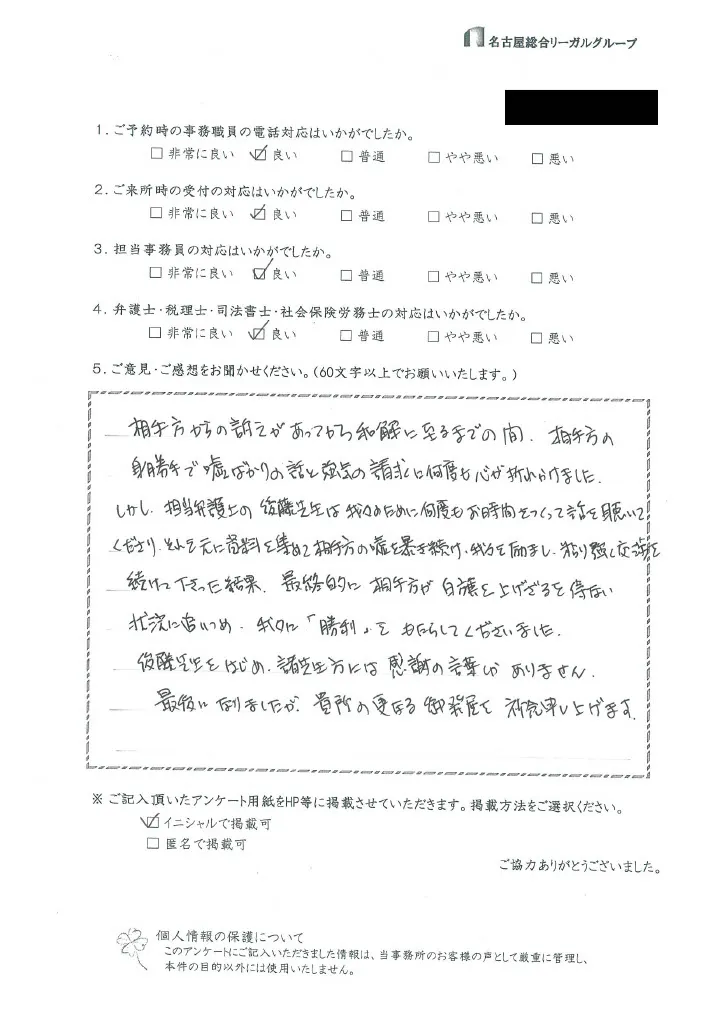 名古屋総合リーガルグループ
1．ご予約時の事務職員の電話対応はいかがでしたか。
□ 非常に良い ☑ 良い □ 普通 □ やや悪い □ 悪い
2．ご来所時の受付の対応はいかがでしたか。
□ 非常に良い ☑ 良い □ 普通 □ やや悪い □ 悪い
3．担当事務員の対応はいかがでしたか。
□ 非常に良い ☑ 良い □ 普通 □ やや悪い □ 悪い
4．弁護士・税理士・司法書士・社会保険労務士の対応はいかがでしたか。
□ 非常に良い ☑ 良い □ 普通 □ やや悪い □ 悪い
5．ご意見・ご感想をお聞かせください。（60文字以上でお願いいたします。）
相手方からの訴えがあってから和解に至るまでの間、相手方の
身勝手で嘘ばかりの話と強気の請求に何度も心が折れかけました。
しかし、担当弁護士の後藤先生は我々のために何度もお時間をつくって話を聴いて
くださり、それを元に資料を集めて相手方の嘘を暴き続け、我々を励まし、粘り強く交渉を
続けて下さった結果、最終的に相手方が白旗を上げざるを得ない
状況に追いつめ、我々に「勝利」をもたらしてくださいました。
後藤先生をはじめ、諸先生方には感謝の言葉しかありません。
最後になりましたが、貴所の更なる御発展を祈念申し上げます。
※ ご記入頂いたアンケート用紙をHP等に掲載させていただきます。掲載方法をご選択ください。
☑ イニシャルで掲載可
□ 匿名で掲載可
ご協力ありがとうございました。
個人情報の保護について
このアンケートにご記入いただきました情報は、当事務所のお客様の声として厳重に管理し、
本件の目的以外には使用いたしません。